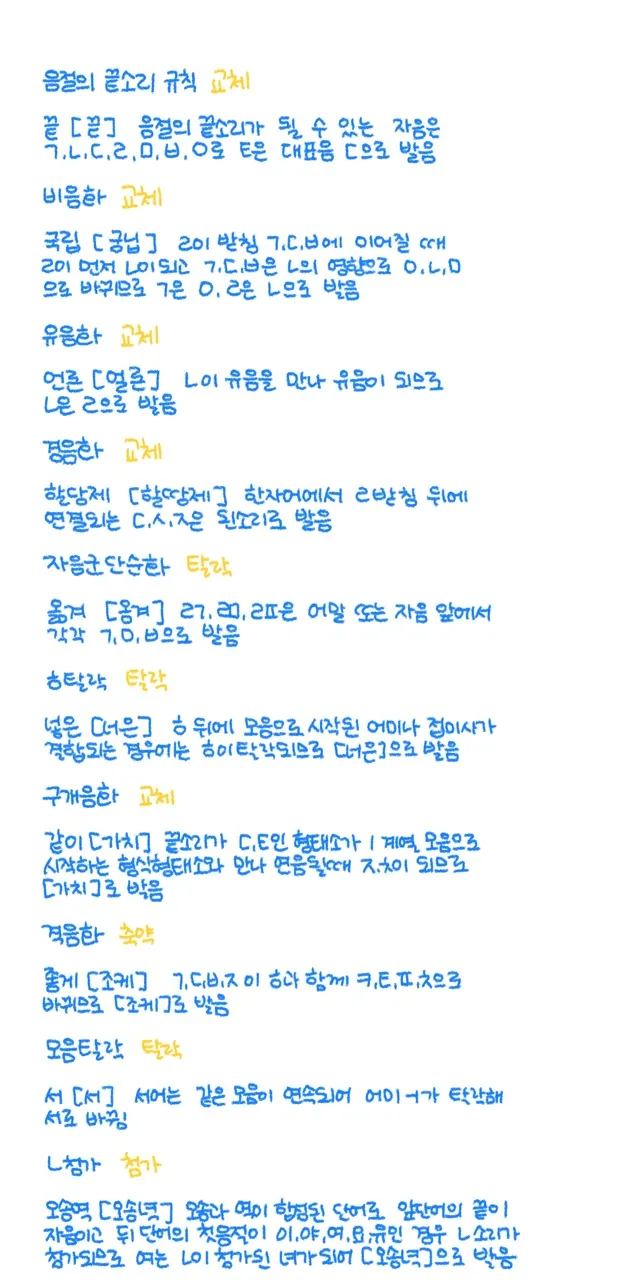 음절의 끝소리 규칙 교체
끝 [끋] 음절의 끝소리가 될 수 있는 자음은
ㄱ,ㄴ,ㄷ,ㄹ,ㅁ,ㅂ,ㅇ로 ㅌ은 대표음 ㄷ으로 발음
비음화 교체
국립 [궁닙] ㄹ이 받침 ㄱ,ㄷ,ㅂ에 이어질 때
ㄹ이 먼저 ㄴ이되고 ㄱ,ㄷ,ㅂ은 ㄴ의 영향으로 ㅇ,ㄴ,ㅁ
으로 바뀌므로 ㄱ은 ㅇ, ㄹ은 ㄴ으로 발음
유음화 교체
언론 [얼론] ㄴ이 유음을 만나 유음이 되므로
ㄴ은 ㄹ으로 발음
경음화 교체
할당제 [할땅제] 한자어에서 ㄹ받침 뒤에
연결되는 ㄷ,ㅅ,ㅈ은 된소리로 발음
자음군단순화 탈락
옮겨 [옴겨] ㄹㄱ,ㄹㅁ,ㄹㅍ은 어말 또는 자음 앞에서
각각 ㄱ,ㅁ,ㅂ으로 발음
ㅎ탈락 탈락
넣은 [너은] ㅎ 뒤에 모음으로 시작된 어미나 접미사가
결합되는 경우에는 ㅎ이탈각되므로 [너은]으로 발음
구개음화 교체
같이 [가치] 끝소리가 ㄷ,ㅌ인 형태소가 ㅣ계열 모음으로
시작하는 형식형태소와 만나 연음될때 ㅈ,ㅊ이 되므로
[가치]로 발음
격음화 축약
좋게 [조케] ㄱ,ㄷ,ㅂ,ㅈ이 ㅎ과 함께 ㅋ,ㅌ,ㅍ,ㅊ으로
바뀌므로 [조케]로 발음
모음탈락 탈락
서 [서] 서어는 같은 모음이 연속되어 어미ㅓ가 탈락해
서로 바뀜
ㄴ첨가 첨가
오송역 [오송녁] 오송과 역이 합성된 단어로 앞단어의 끝이
자음이고 뒤 단어의 첫음절이 이,야,여,요,유인 경우 ㄴ소리가
첨가되므로 여는 ㄴ이 첨가된 녀가 되어 [오송녁]으로 발음